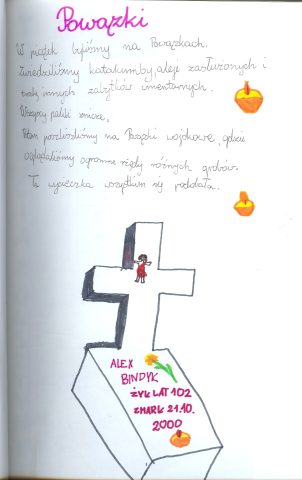 Powązki
W piątek byliśmy na Powązkach.
Zwiedzaliśmy katakumby, aleje zasłużonych i
wiele innych zabytków cmentarnych.
Wszyscy palili znicze,
Potem poszliśmy na Powązki wojskowe, gdzie
oglądaliśmy ogromne rzędy różnych grobów.
Ta wycieczka wszystkim się podobała.
ALEX
BINDYK
ŻYŁ LAT 102
ZMARŁ 21.10.
2000